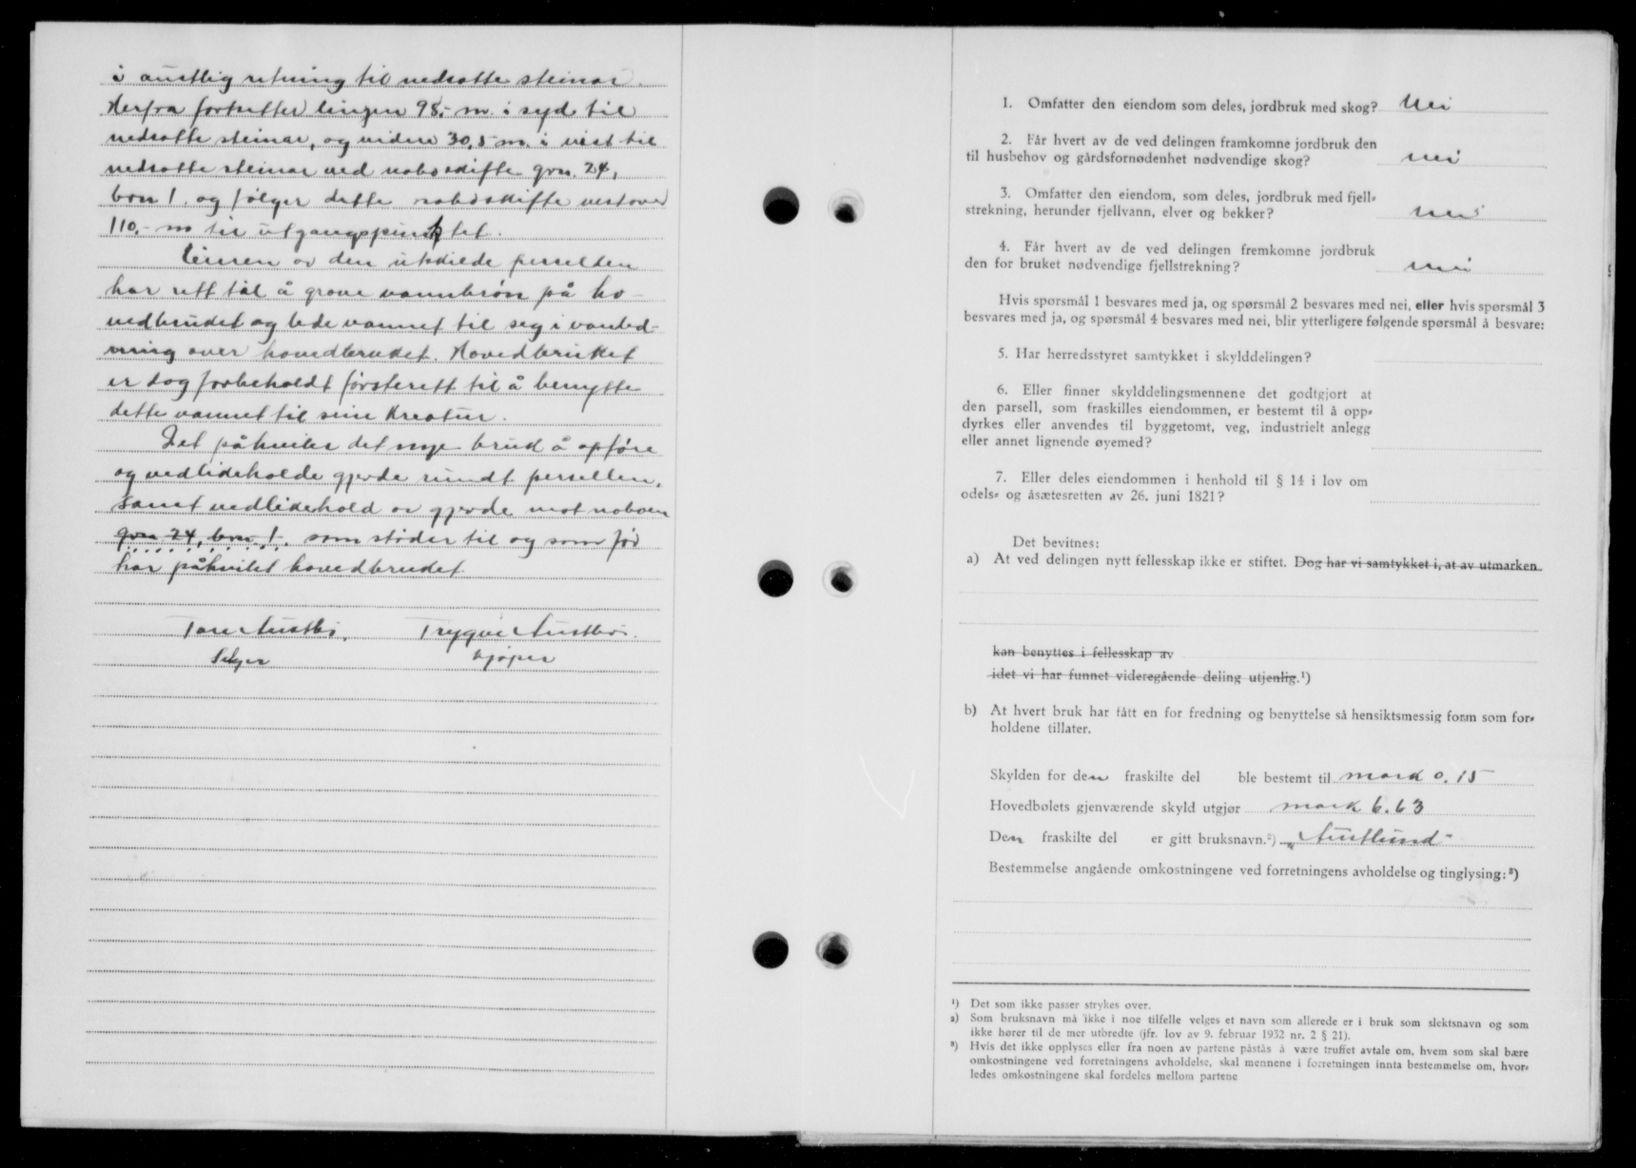 i austlig retning til nedsatte steinar.
Herfra fortsetter linjen 98,- m. i syd til
nedsatte steinar, og videre 30,5 m. i vest til
nedsatte steinar ved naboskifte grn. 24,
brn 1. og følger dette naboskifte vestover
110,- m til utgangspunktet.
Eieren av den utskilde parsellen
har rett til å grave vannbrøn på ho-
vedbruket og lede vannet til seg i vanled-
ning over hovedbruket. Hovedbruket
er dog forbeholdt førsterett til å benytte
dette vannet til sine kreatur.
Det påkviler det nye bruk å opføre
og vedlikeholde gjerde rundt parsellen,
samt vedlikehold av gjerde mot naboen
grn 24, brn 1. som støder til og som før
har påkvilet hovedbruket.
Tore Austbø. Trygve Austbø.
Selger Kjøper
1. Omfatter den eiendom som deles, jordbruk med skog? Nei
2. Får hvert av de ved delingen framkomne jordbruk den
til husbehov og gårdsfornødenhet nødvendige skog? nei
3. Omfatter den eiendom, som deles, jordbruk med fjell-
strekning, herunder fjellvann, elver og bekker? nei
4. Får hvert av de ved delingen fremkomne jordbruk
den for bruket nødvendige fjellstrekning? nei
Hvis spørsmål 1 besvares med ja, og spørsmål 2 besvares med nei, eller hvis spørsmål 3
besvares med ja, og spørsmål 4 besvares med nei, blir ytterligere følgende spørsmål å besvare:
5. Har herredsstyret samtykket i skylddelingen?
6. Eller finner skylddelingsmennene det godtgjort at
den parsell, som fraskilles eiendommen, er bestemt til å opp-
dyrkes eller anvendes til byggetomt, veg, industrielt anlegg
eller annet lignende øyemed?
7. Eller deles eiendommen i henhold til § 14 i lov om
odels- og åsætesretten av 26. juni 1821?
Det bevitnes:
a) At ved delingen nytt fellesskap ikke er stiftet. Dog har vi samtykket i, at av utmarken
kan benyttes i fellesskap av
idet vi har funnet videregående deling utjenlig.¹)
b) At hvert bruk har fått en for fredning og benyttelse så hensiktsmessig form som for-
holdene tillater.
Skylden for den fraskilte del ble bestemt til mark 0.15
Hovedbølets gjenværende skyld utgjør mark 6.63
Den fraskilte del er gitt bruksnavn.²) „Austlund"
Bestemmelse angående omkostningene ved forretningens avholdelse og tinglysing:³)
¹) Det som ikke passer strykes over.
²) Som bruksnavn må ikke i noe tilfelle velges et navn som allerede er i bruk som slektsnavn og som
ikke hører til de mer utbredte (jfr. lov av 9. februar 1932 nr. 2 § 21).
³) Hvis det ikke opplyses eller fra noen av partene påstås å være truffet avtale om, hvem som skal bære
omkostningene ved forretningens avholdelse, skal mennene i forretningen innta bestemmelse om, hvor-
ledes omkostningene skal fordeles mellom partene